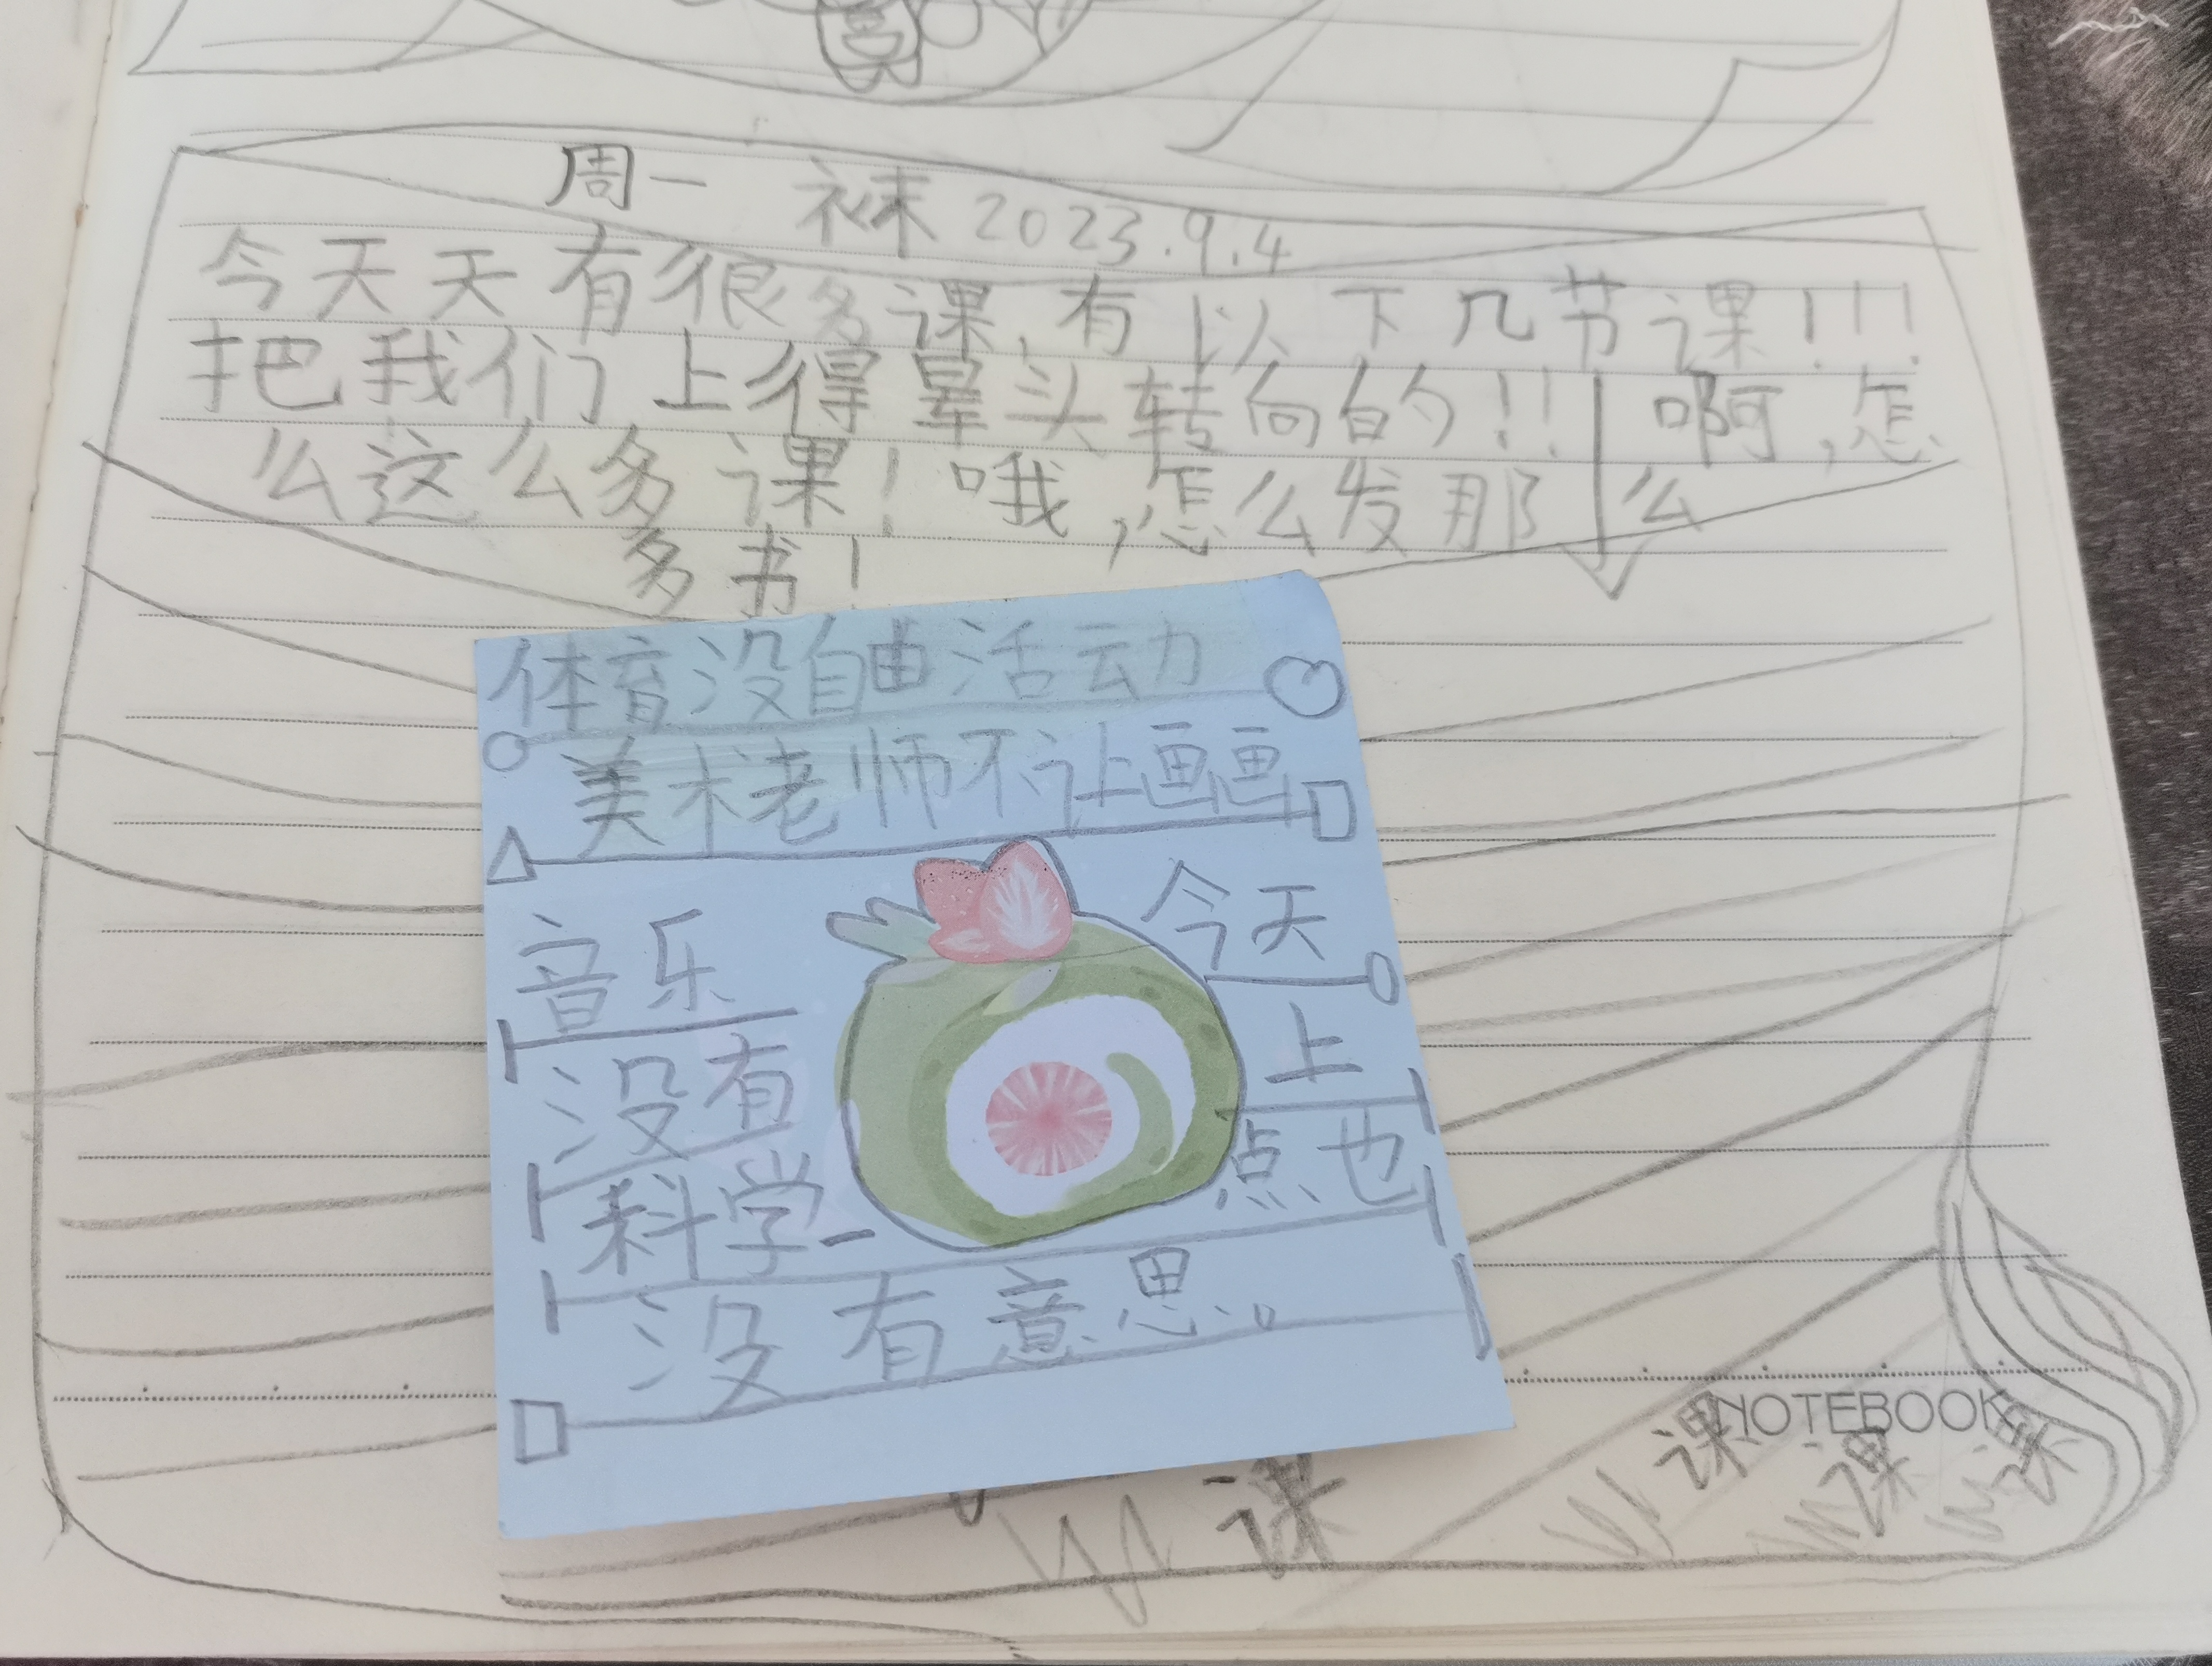 周一 袜 2023.9.4
今天天有很多课,有以下几节课!!!
把我们上得晕头转向的!! 啊,怎
么这么多课!哦,怎么发那么
多书!
体育没自由活动
美术老师不让画画
音乐 今天
没有 上
科学- 点也
没有意思。
NOTEBOOK
课 课 课
课